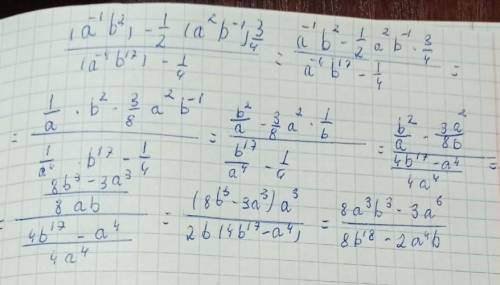 \frac{(a^{-1} b^2) - \frac{1}{2} (a^2 b^{-1}) \frac{3}{4}}{(a^{-4} b^{17}) - \frac{1}{4}} = \frac{a^{-1} b^2 - \frac{1}{2} a^2 b^{-1} \cdot \frac{3}{4}}{a^{-4} b^{17} - \frac{1}{4}} =
= \frac{\frac{1}{a} \cdot b^2 - \frac{3}{8} a^2 b^{-1}}{\frac{1}{a^4} \cdot b^{17} - \frac{1}{4}} = \frac{\frac{b^2}{a} - \frac{3}{8} a^2 \cdot \frac{1}{b}}{\frac{b^{17}}{a^4} - \frac{1}{4}} = \frac{\frac{b^2}{a} - \frac{3a^2}{8b}}{\frac{4b^{17} - a^4}{4a^4}} =
= \frac{\frac{8b^3 - 3a^3}{8ab}}{\frac{4b^{17} - a^4}{4a^4}} = \frac{(8b^3 - 3a^3) a^3}{2b (4b^{17} - a^4)} = \frac{8a^3b^3 - 3a^6}{8b^{18} - 2a^4b}